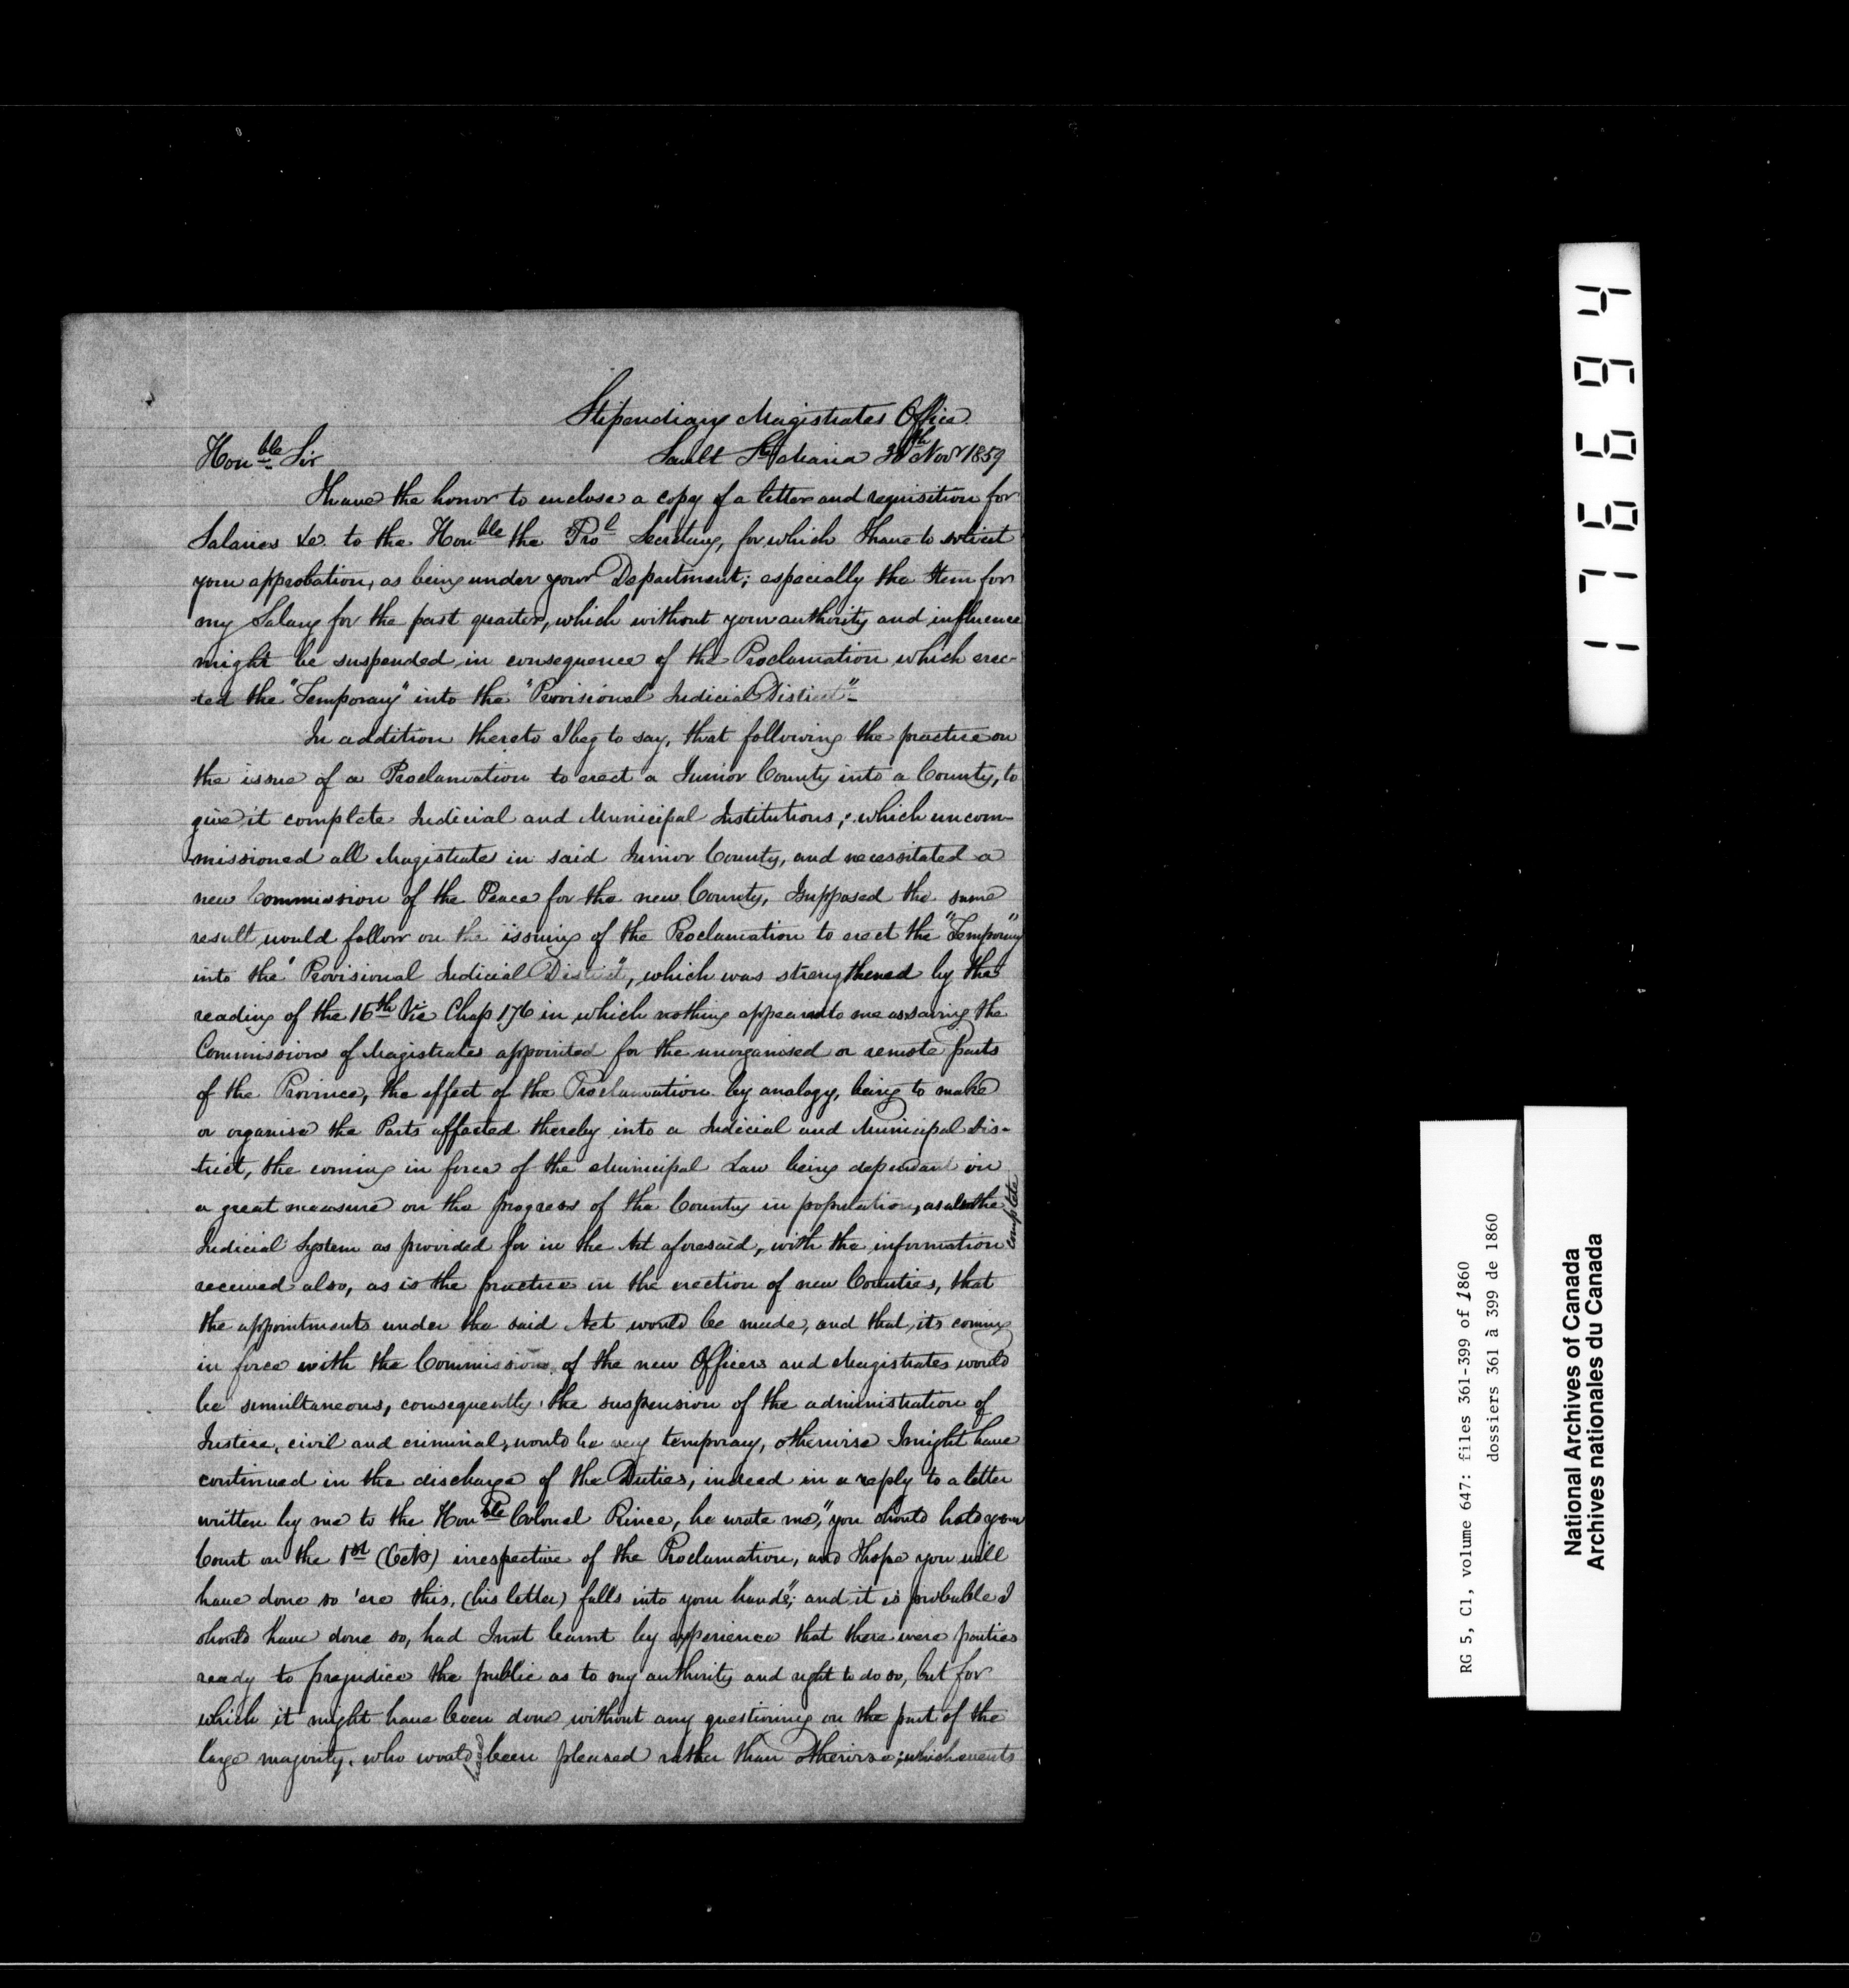 Stipendiary Magistrates Office
Honble Sir Sault Ste Maria 30th Novr 1859
I have the honor to enclose a copy of a letter and requisition for
Salaries &c. to the Honble the Prol Secretary, for which I have to solicit
your approbation, as being under your Department; especially the Item for
my Salary for the past quarter, which without your authority and influence
might be suspended in consequence of the Proclamation which erec-
ted the "Temporary" into the "Provisional Judicial District"-
In addition thereto I beg to say, that following the practice on
the issue of a Proclamation to erect a Junior County into a County, to
give it complete Judicial and Municipal Institutions; which uncom-
missioned all Magistrates in said Junior County, and necessitated a
new Commission of the Peace for the new County, I supposed the same
result would follow on the issuing of the Proclamation to erect the "Temporary"
into the "Provisional Judicial District", which was strengthened by the
reading of the 16th Vic Chap 176 in which nothing appeared to me as saving the
Commissions of Magistrates appointed for the unorganised or remote parts
of the Province, the effect of the Proclamation by analogy, being to make
or organise the Parts affected thereby into a Judicial and Municipal Dis-
trict, the coming in force of the Municipal Law being dependant in
a great measure on the progress of the County in population, as also the complete
Judicial System as provided for in the Act aforesaid, with the information
received also, as is the practice in the erection of new Counties, that
the appointments under the said Act would be made, and that its coming
in force with the Commissions of the new Officers and Magistrates would
be simultaneous, consequently the suspension of the administration of
Justice, civil and criminal, would be very temporary, otherwise I might have
continued in the discharge of the Duties, indeed in a reply to a letter
written by me to the Honble Colonel Prince, he wrote me, "you should hold your
Court on the 1st (Octr) irrespective of the Proclamation, and I hope you will
have done so 'ere this, (his letter) falls into your hands", and it is probable I
should have done so, had I not learnt by experience that there were parties
ready to prejudice the public as to my authority and right to do so, but for
which it might have been done without any questioning on the part of the
large majority, who would have been pleased rather than otherwise; which events
176694
RG 5, C1, volume 647: files 361-399 of 1860
dossiers 361 à 399 de 1860
National Archives of Canada
Archives nationales du Canada